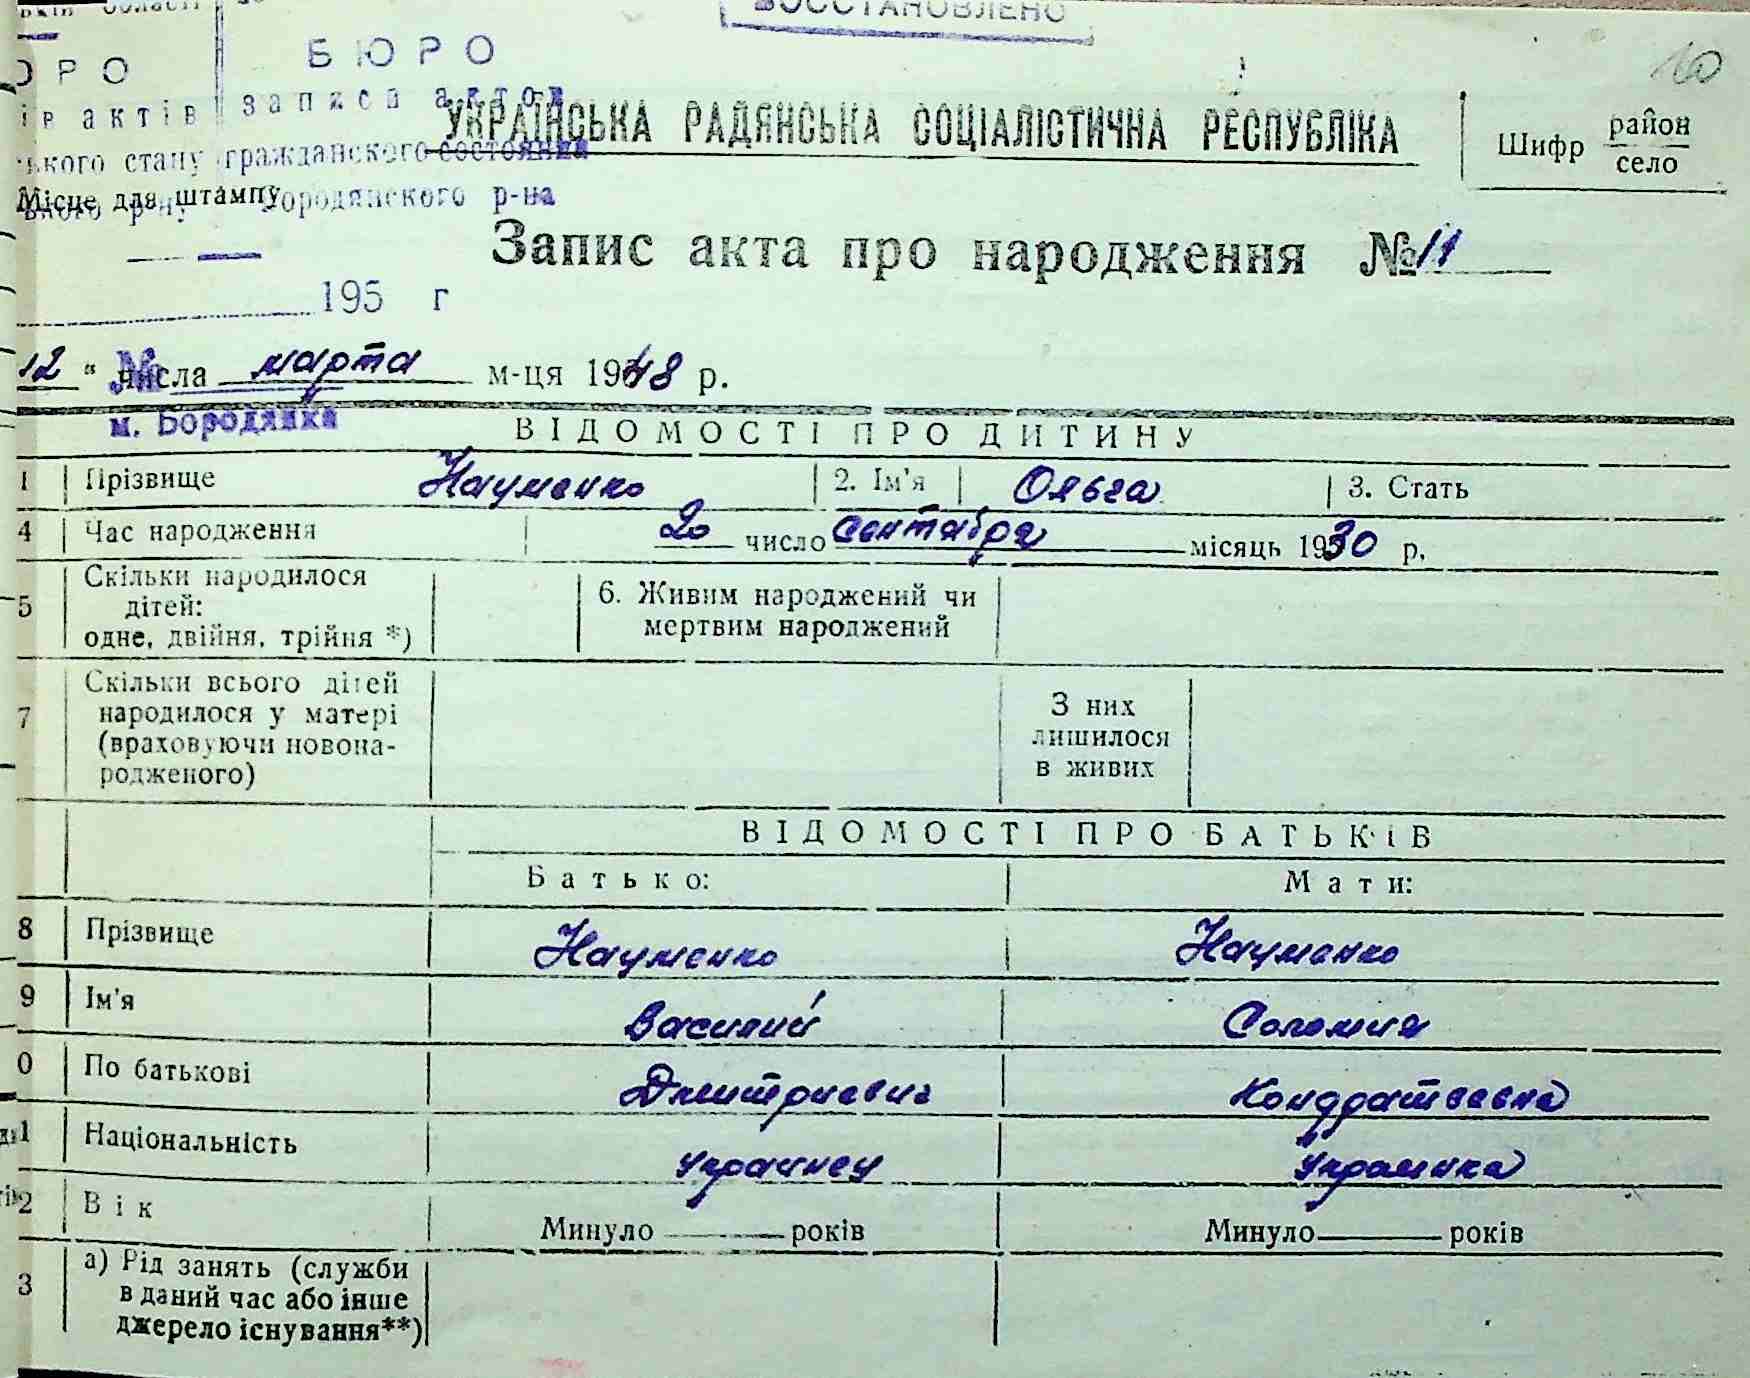 ВОССТАНОВЛЕНО
10
БЮРО
записи актов
гражданского состояния
Бородянского р-на
Місце для штампу
195 г
№
м. Бородянка
УКРАЇНСЬКА РАДЯНСЬКА СОЦІАЛІСТИЧНА РЕСПУБЛІКА
Шифр район
село
Запис акта про народження №11
12 " числа марта м-ця 1948 р.
ВІДОМОСТІ ПРО ДИТИНУ
1 Прізвище Науменко 2. Ім'я Ольга 3. Стать
4 Час народження 20 число сентября місяць 1930 р.
5 Скільки народилося
дітей:
одне, двійня, трійня *)
6. Живим народжений чи
мертвим народжений
7 Скільки всього дітей
народилося у матері
(враховуючи новона-
родженого)
З них
лишилося
в живих
ВІДОМОСТІ ПРО БАТЬКІВ
Батько: Мати:
8 Прізвище Науменко Науменко
9 Ім'я Василий Соломия
0 По батькові Дмитриевич Кондратьевна
1 Національність украинец Украинка
2 Вік Минуло років Минуло років
3 а) Рід занять (служби
в даний час або інше
джерело існування**)